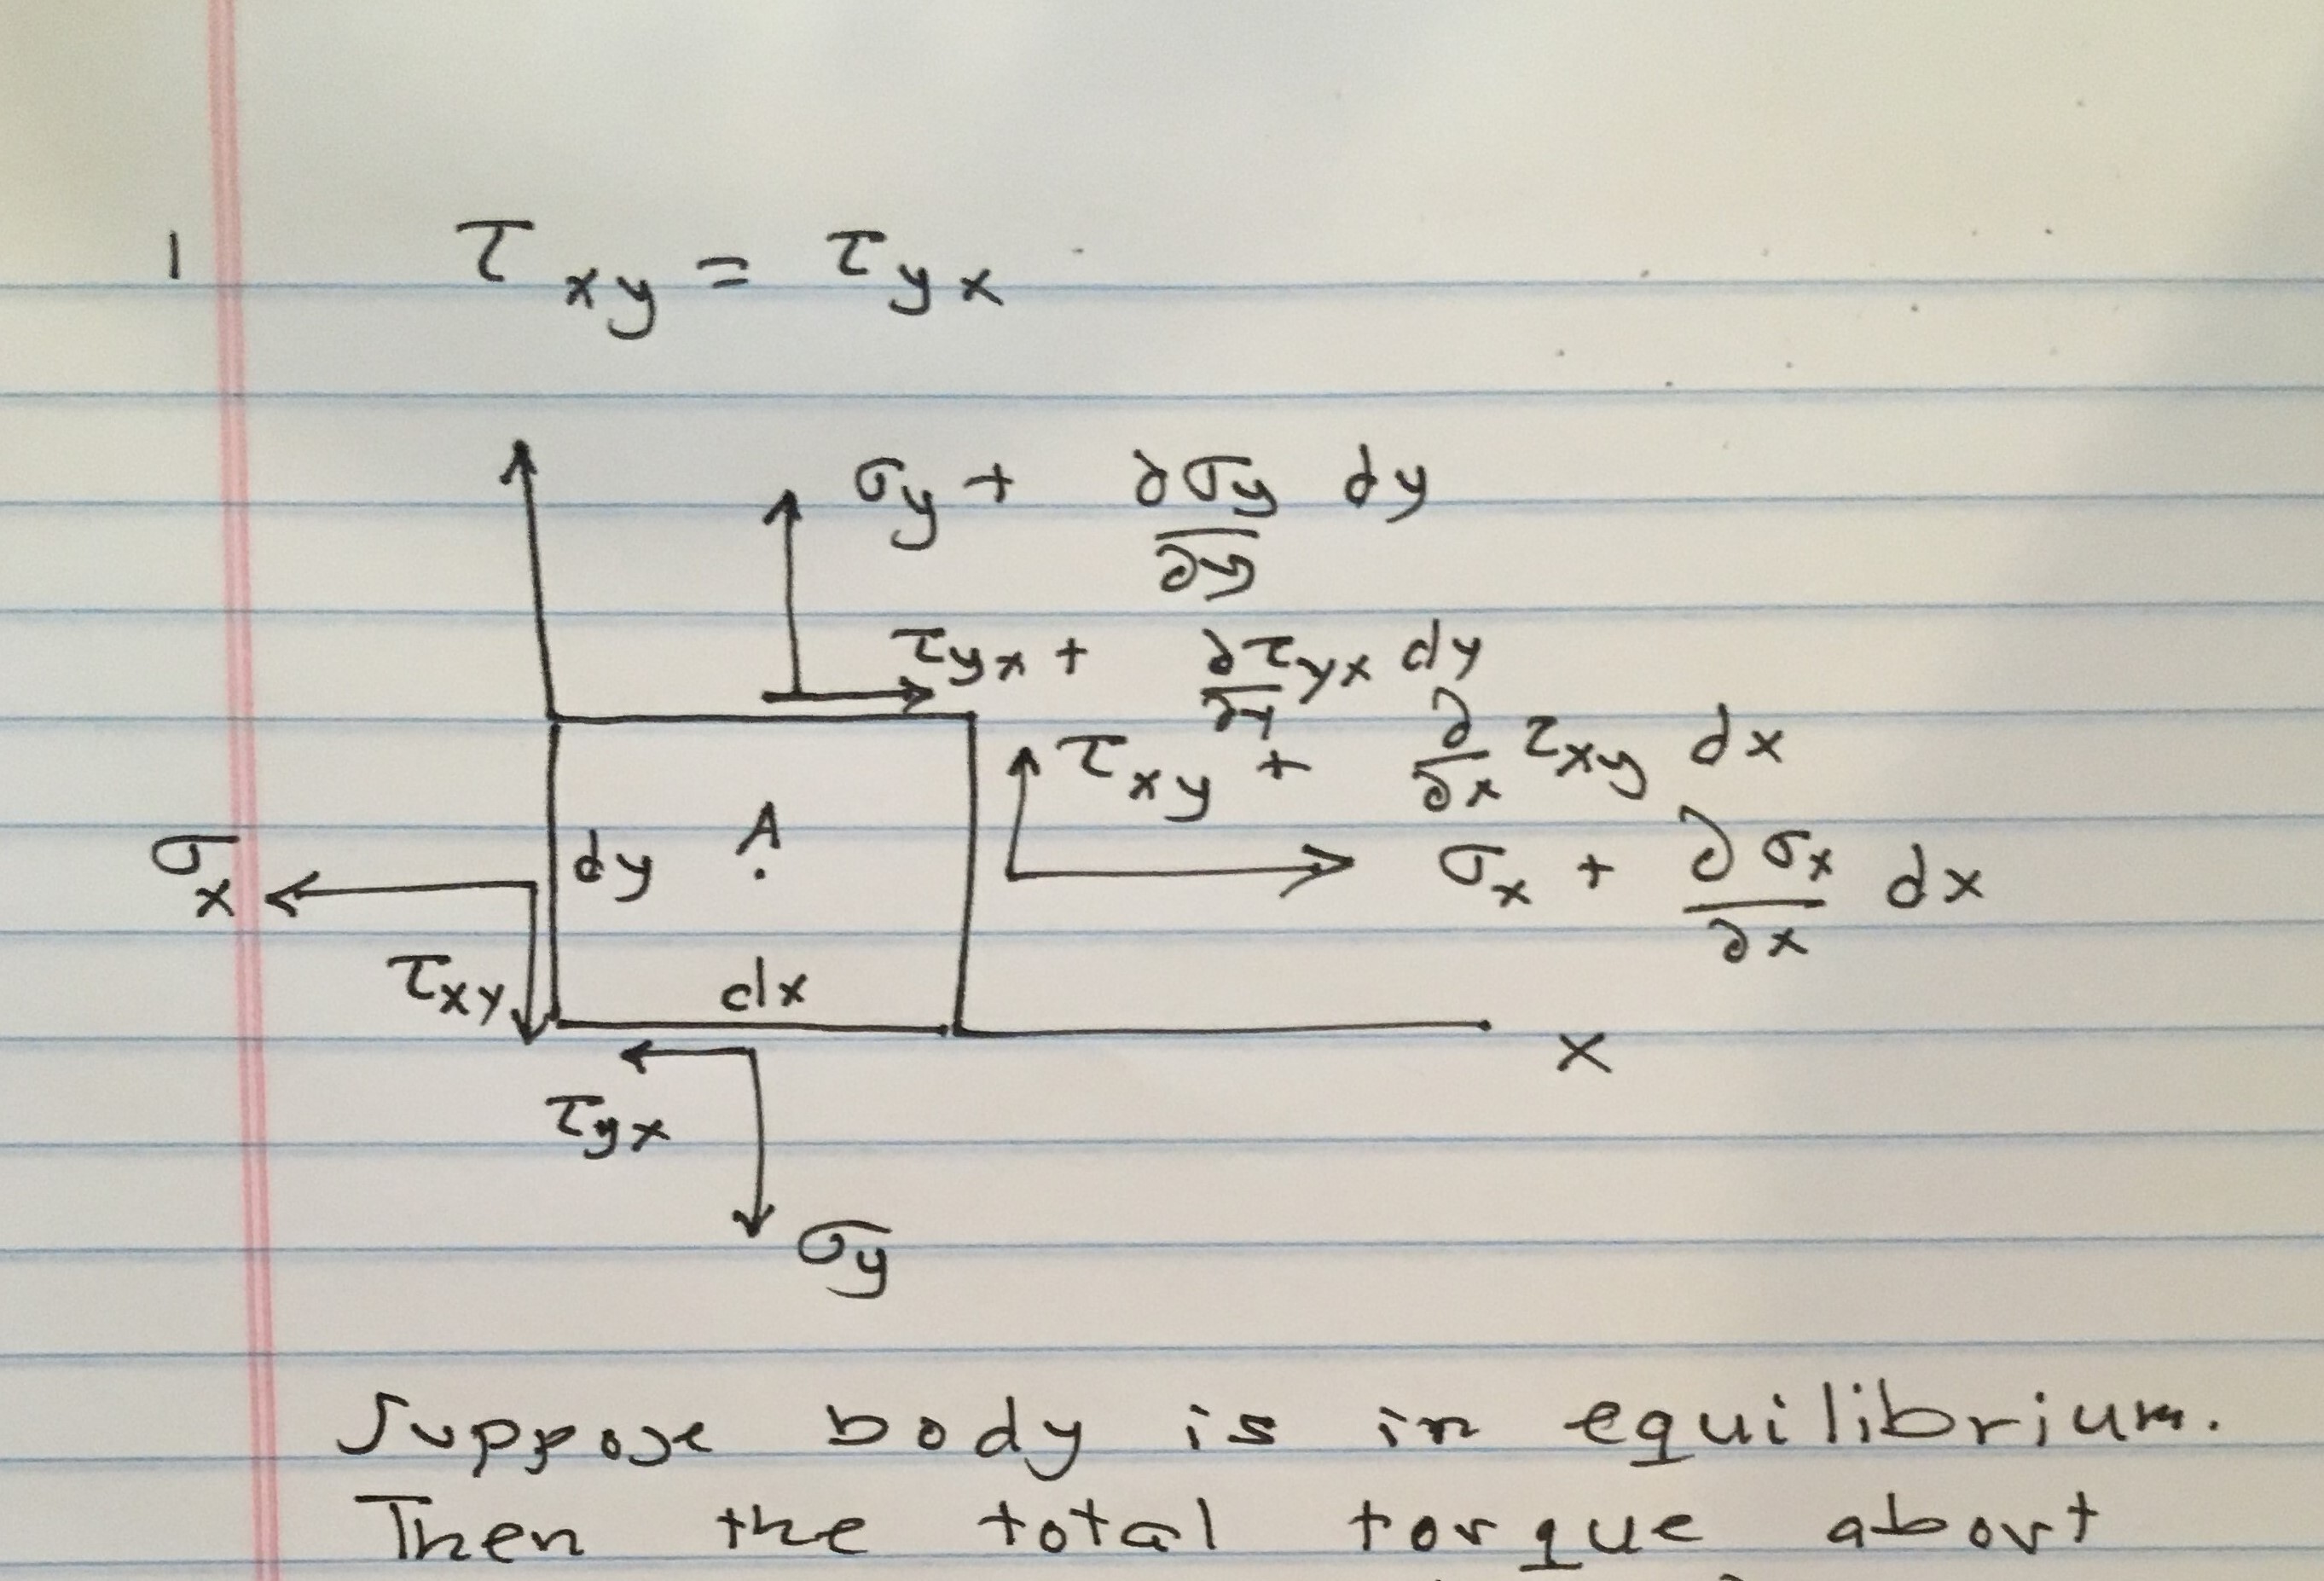 1 τxy = τyx
σy + ∂σy/∂y dy
τyx + ∂τyx/∂y dy
τxy + ∂/∂x τxy dx
A
dy
σx
σx + ∂σx/∂x dx
τxy
dx
x
τyx
σy
Suppose body is in equilibrium.
Then the total torque about